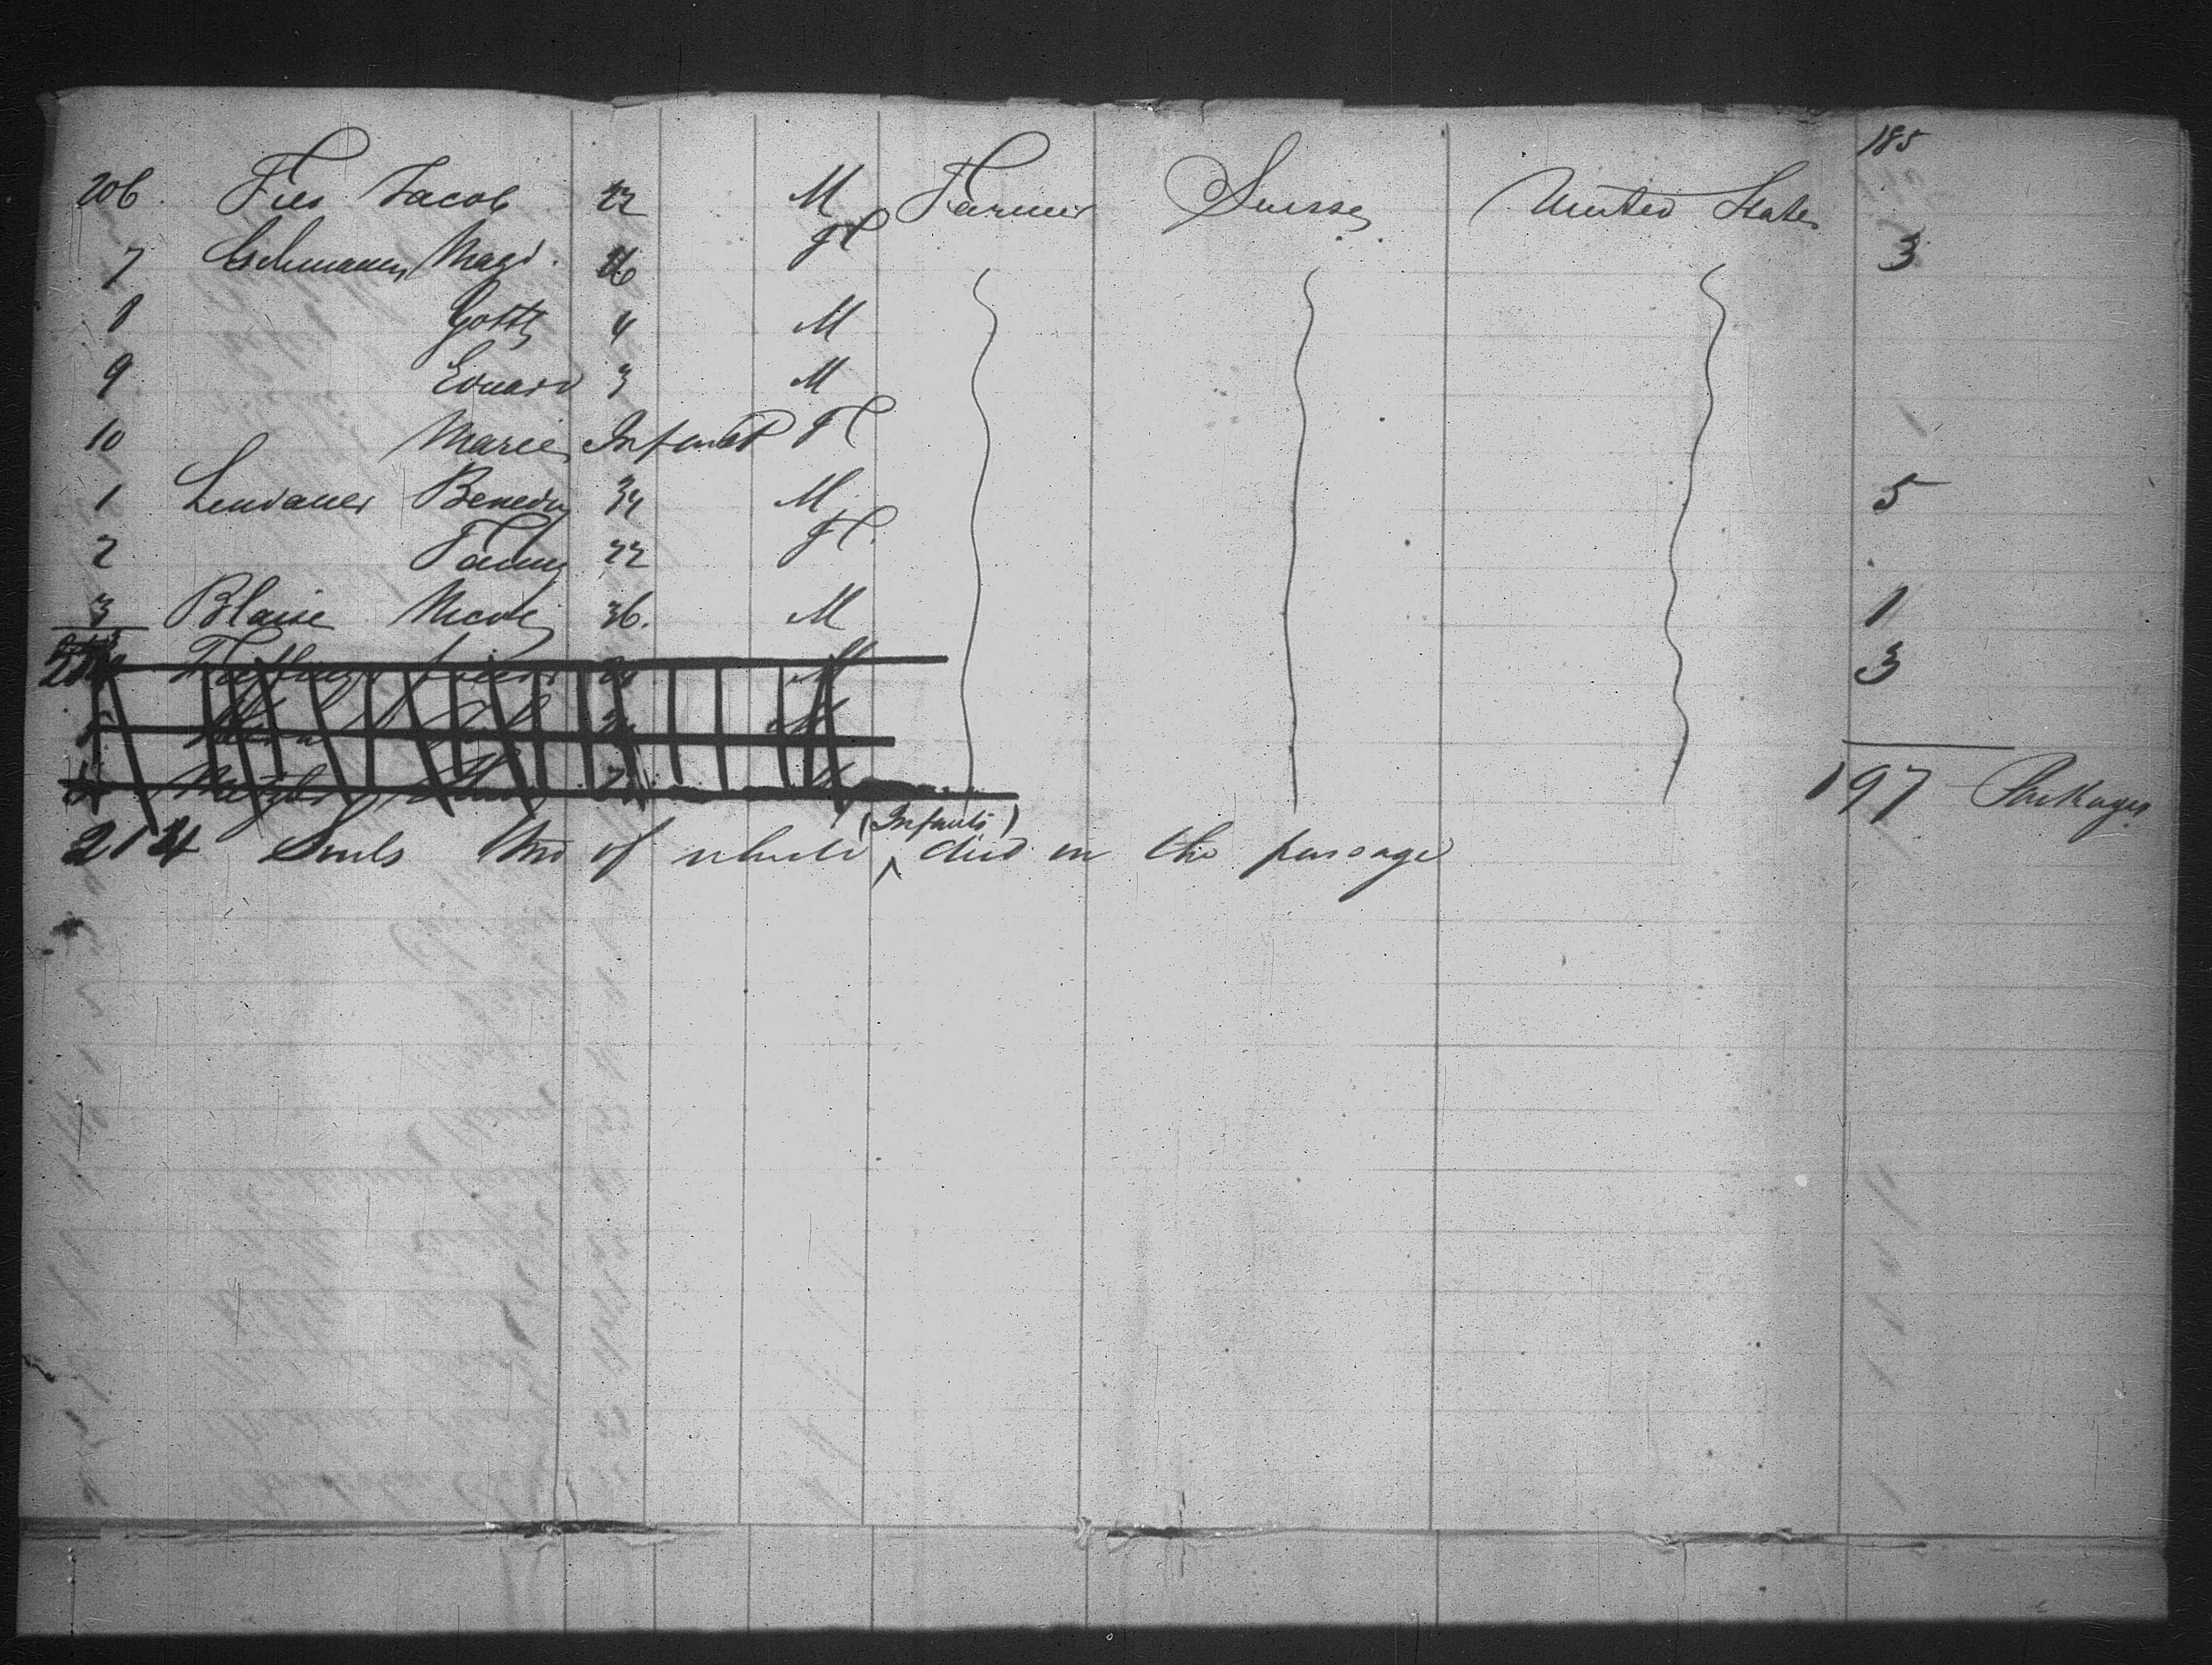 185
206 Fies Jacob 22 M Farmer Suisse United States
7 Eschmann Magd. 26 F 3
8 Gottl 4 M
9 Eduard 3 M
10 Marie Infant F
1 Lindauer Bened 34 M 5
2 Fanny 22 F
3 Blaise Nicol 36. M 1
M 3
M
197 Packages
(Infants)
213 Souls two of which died on the passage